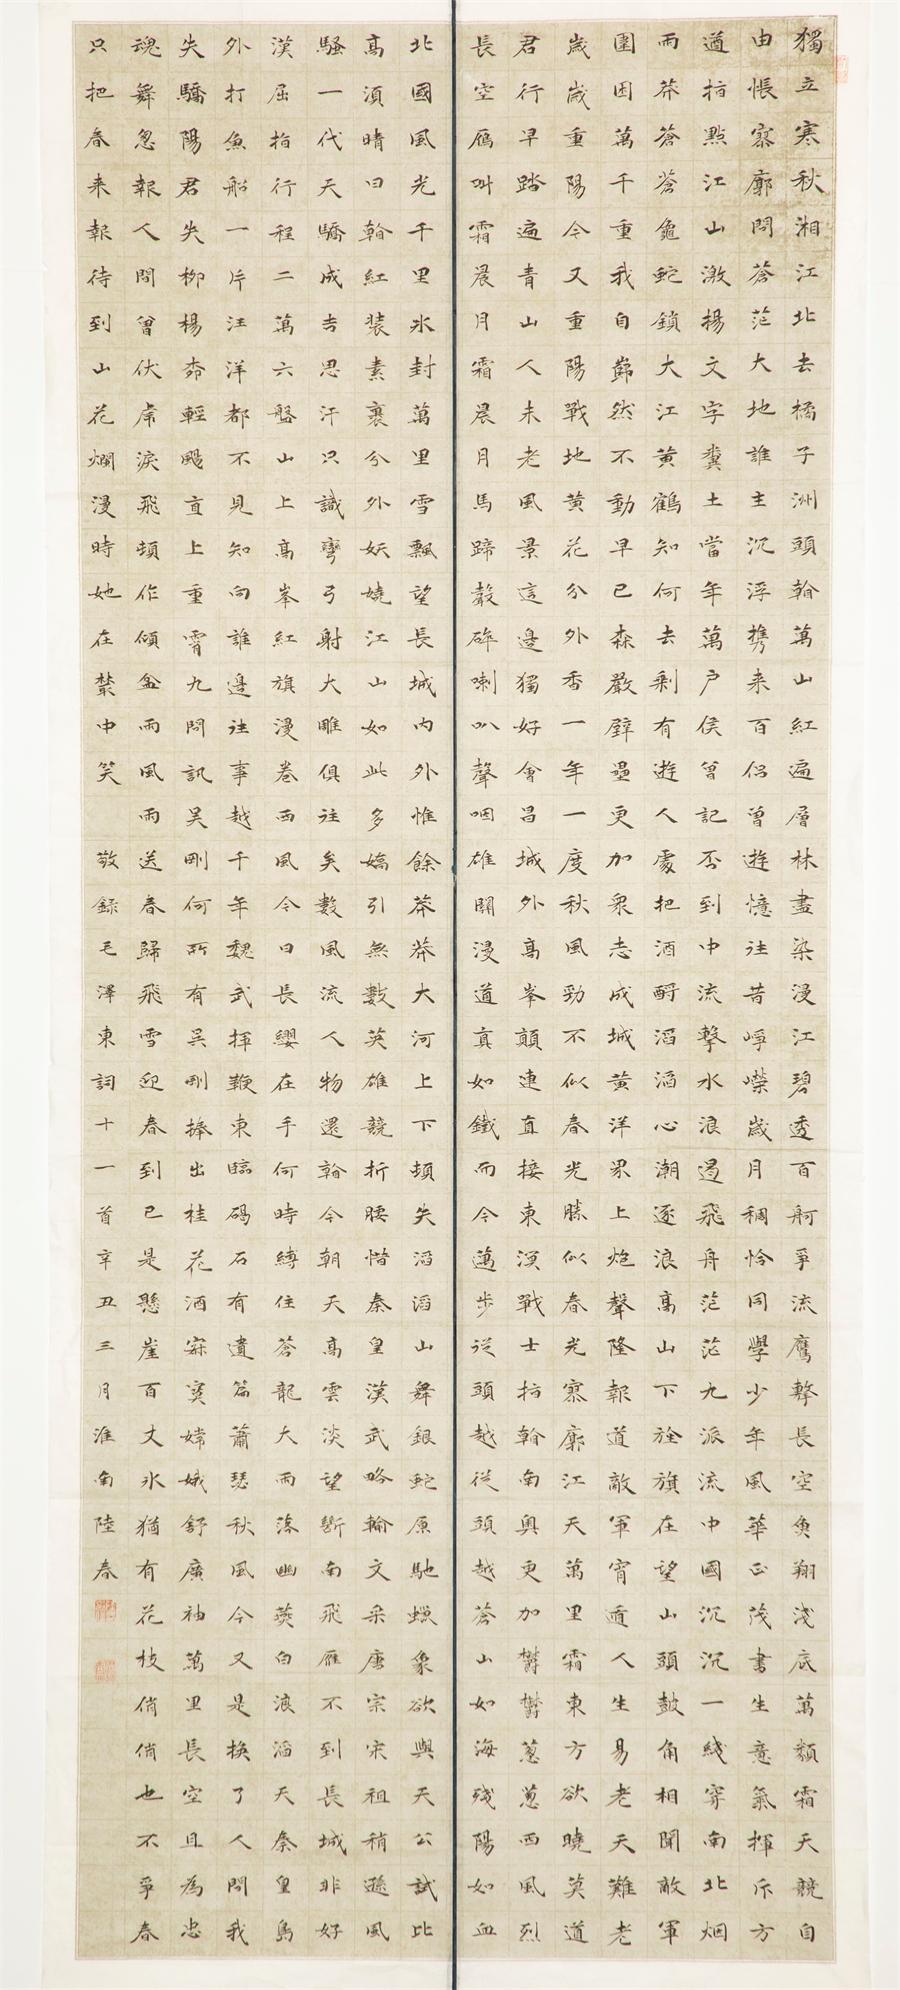 獨立寒秋湘江北去橘子洲頭看萬山紅遍層林盡染漫江碧透百舸爭流鷹擊長空魚翔淺底萬類霜天競自
由悵寥廓問蒼茫大地誰主沉浮攜來百侶曾遊憶往昔崢嶸歲月稠恰同學少年風華正茂書生意氣揮斥方
遒指點江山激揚文字糞土當年萬戶侯曾記否到中流擊水浪遏飛舟茫茫九派流中國沉沉一綫穿南北烟
雨莽蒼蒼龜蛇鎖大江黃鶴知何去剩有遊人處把酒酹滔滔心潮逐浪高山下旌旗在望山頭鼓角相聞敵軍
圍困萬千重我自巋然不動早已森嚴壁壘更加衆志成城黃洋界上炮聲隆報道敵軍宵遁人生易老天難老
歲歲重陽今又重陽戰地黃花分外香一年一度秋風勁不似春光勝似春光寥廓江天萬里霜東方欲曉莫道
君行早踏遍青山人未老風景這邊獨好會昌城外高峯顛連直接東溟戰士指看南粵更加鬱鬱蔥蔥西風烈
長空雁叫霜晨月霜晨月馬蹄聲碎喇叭聲咽雄關漫道真如鐵而今邁步從頭越從頭越蒼山如海殘陽如血
北國風光千里氷封萬里雪飄望長城內外惟餘莽莽大河上下頓失滔滔山舞銀蛇原馳蠟象欲與天公試比
高須晴日看紅裝素裹分外妖嬈江山如此多嬌引無數英雄競折腰惜秦皇漢武略輸文采唐宗宋祖稍遜風
騷一代天驕成吉思汗只識彎弓射大雕俱往矣數風流人物還看今朝天高雲淡望斷南飛雁不到長城非好
漢屈指行程二萬六盤山上高峯紅旗漫卷西風今日長纓在手何時縛住蒼龍大雨落幽燕白浪滔天秦皇島
外打魚船一片汪洋都不見知向誰邊往事越千年魏武揮鞭東臨碣石有遺篇蕭瑟秋風今又是換了人間我
失驕陽君失柳楊柳輕颺直上重霄九問訊吴剛何所有吴剛捧出桂花酒寂寞嫦娥舒廣袖萬里長空且為忠
魂舞忽報人間曾伏虎淚飛頓作傾盆雨風雨送春歸飛雪迎春到已是懸崖百丈氷猶有花枝俏俏也不爭春
只把春來報待到山花爛漫時她在叢中笑 敬録毛澤東詞十一首辛丑三月淮南陸春